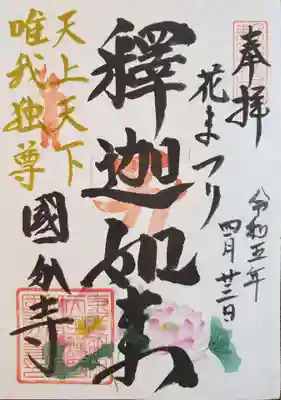 奉拝
花まつり
令和五年
四月廿二日
釋迦如来
天上天下
唯我独尊
國分寺